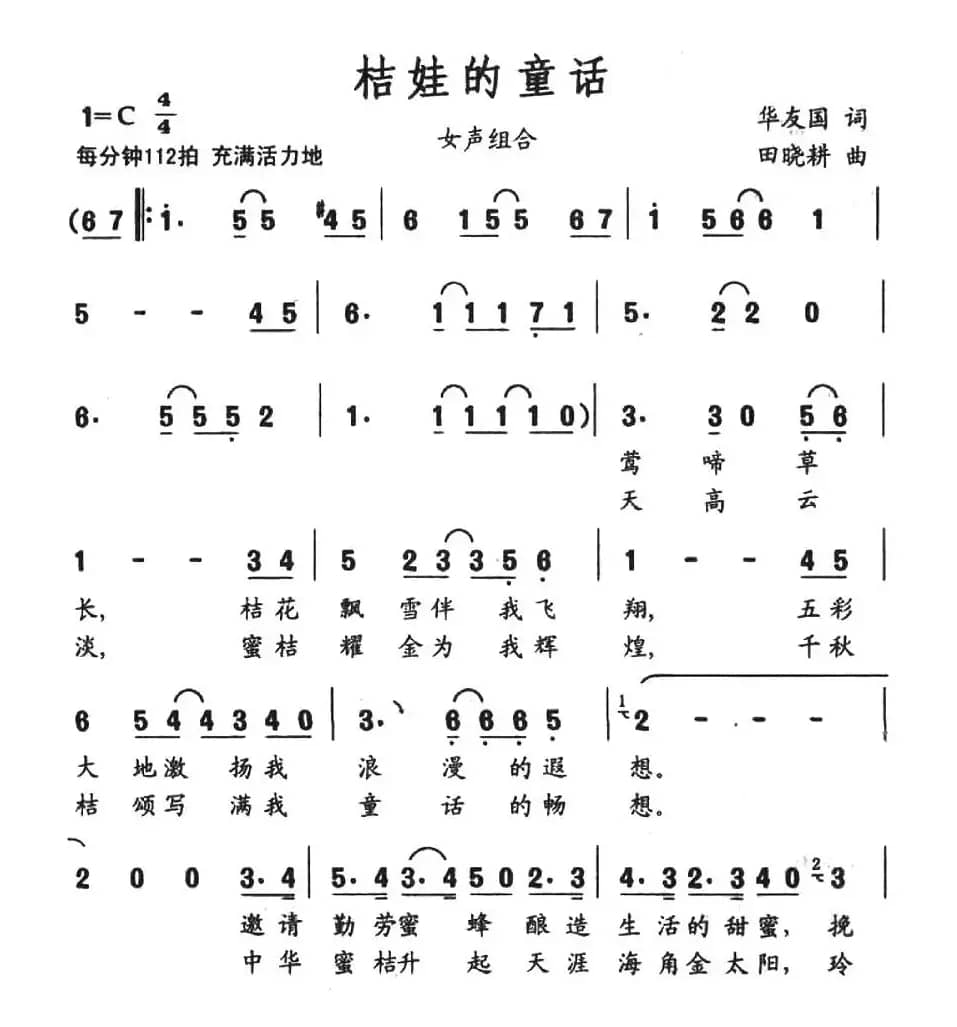 桔娃的童话
1=C 4/4
女声组合
华友国 词
每分钟112拍 充满活力地
田晓耕 曲
(6 7 ‖: i· 5 5 #4 5 | 6 1 5 5 6 7 | i 5 6 6 1 |
5 - - 4 5 | 6· 1 1 1 7 1 | 5· 2 2 0 |
6· 5 5 5 2 | 1· 1 1 1 1 0) | 3· 3 0 5 6
莺 啼 草
天 高 云
1 - - 3 4 | 5 2 3 3 5 6 | 1 - - 4 5 |
长, 桔花 飘 雪伴 我飞 翔, 五彩
淡, 蜜桔 耀 金为 我辉 煌, 千秋
6 5 4 4 3 4 0 | 3· 6 6 6 5 | 1 2 - - -
大 地激 扬我 浪 漫 的遐 想。
桔 颂写 满我 童 话 的畅 想。
2 0 0 3· 4 | 5· 4 3· 4 5 0 2· 3 | 4· 3 2· 3 4 0 2 3 |
邀请 勤劳蜜 蜂 酿造 生活的甜蜜, 挽
中华 蜜桔升 起 天涯 海角金太阳, 玲